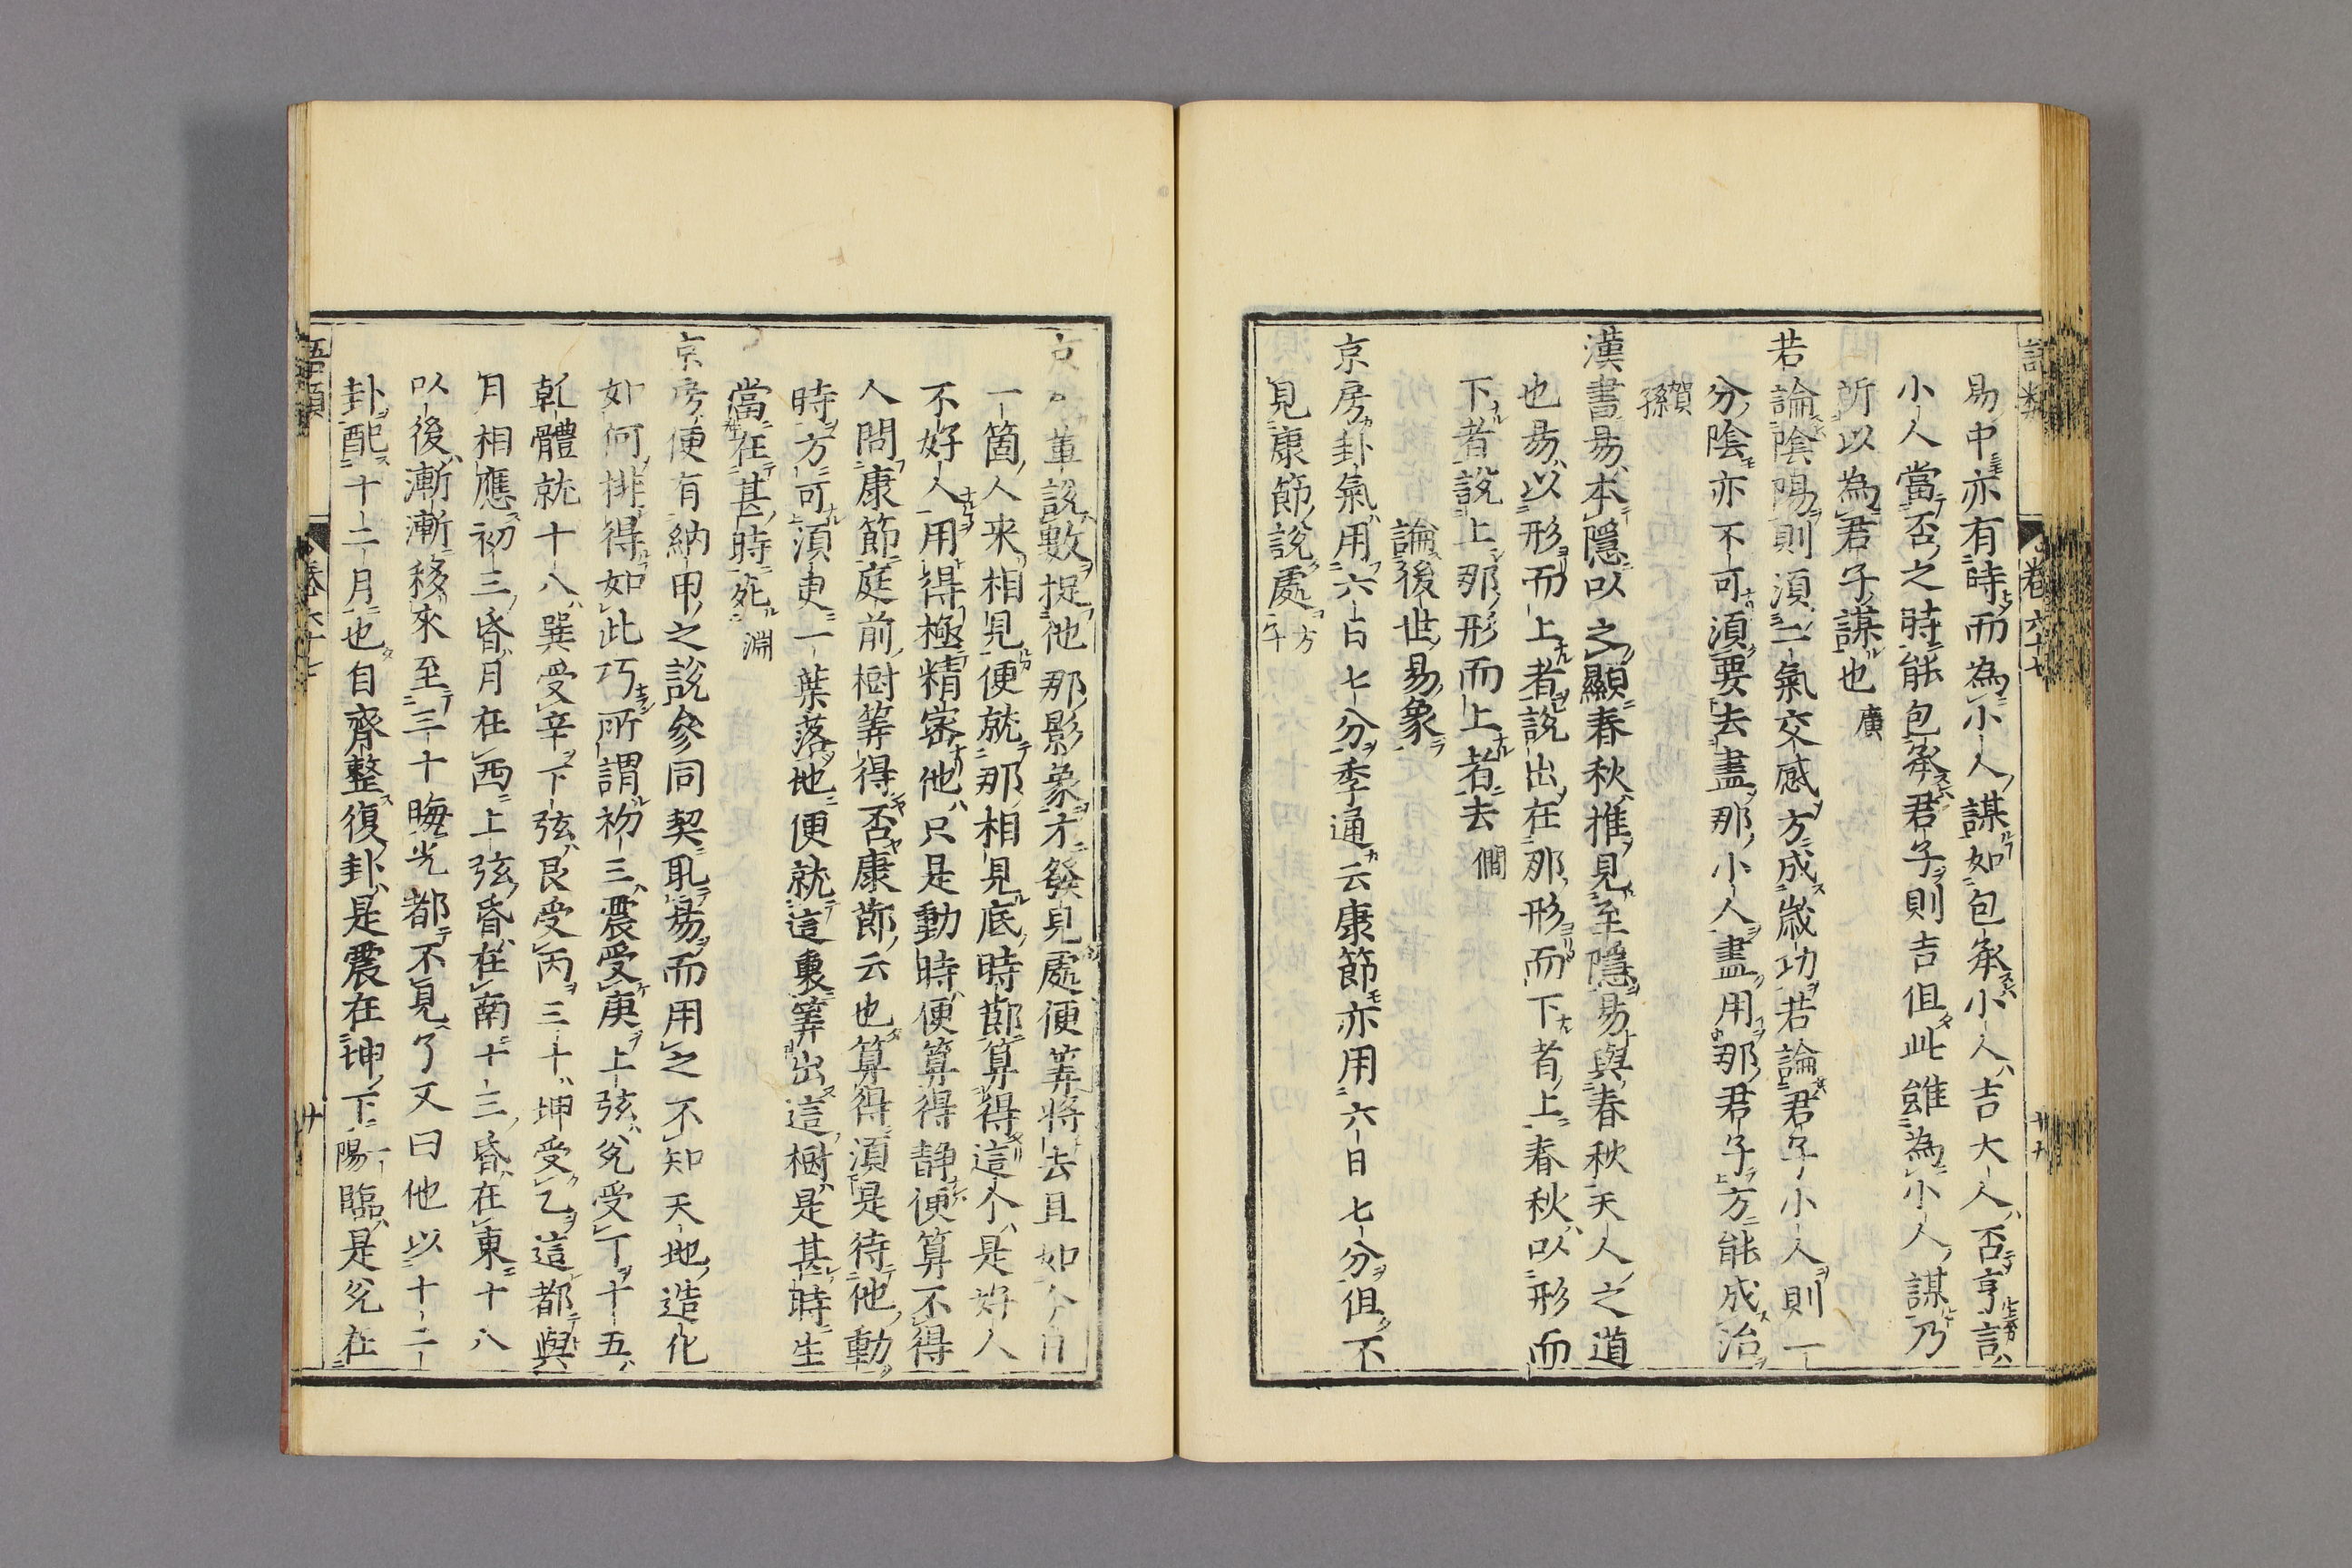 語類
卷六十七
廿九
易中亦有時而為小人謀如包承小人吉大人否亨言
小人當否之時能包承君子則吉但此雖為小人謀乃
所以為君子謀也廣
若論陰陽則須二氣交感方成歲功若論君子小人則一
分陰亦不可須要去盡那小人盡用那君子方能成治
賀孫
漢書易本隱以之顯春秋推見至隱易與春秋天人之道
也易以形而上者說出在那形而下者上春秋以形而
下者說上那形而上者去僩
論後世易象
京房卦氣用六日七分季通云康節亦用六日七分但不
見康節說處方子
京房輩說數捉他那影象才發見處便筭將去且如今日
一箇人来相見便就那相見底時節算得這个是好人
不好人用得極精密他只是動時便算得静便算不得
人問康節庭前樹筭得否康節云也算得須是待他動
時方可須臾一葉落地便就這裏筭出這樹是甚時生
當在甚時死淵
京房便有納甲之說參同契取易而用之不知天地造化
如何排得如此巧所謂初三震受庚上弦兌受丁十五
乹體就十八巽受辛下弦艮受丙三十坤受乙這都與
月相應初三昏月在西上弦昏在南十三昏在東十八
以後漸漸移來至三十晦光都不見了又曰他以十二
卦配十二月也自齊整復卦是震在坤下一陽臨是兌在
語類
卷六十七
卅